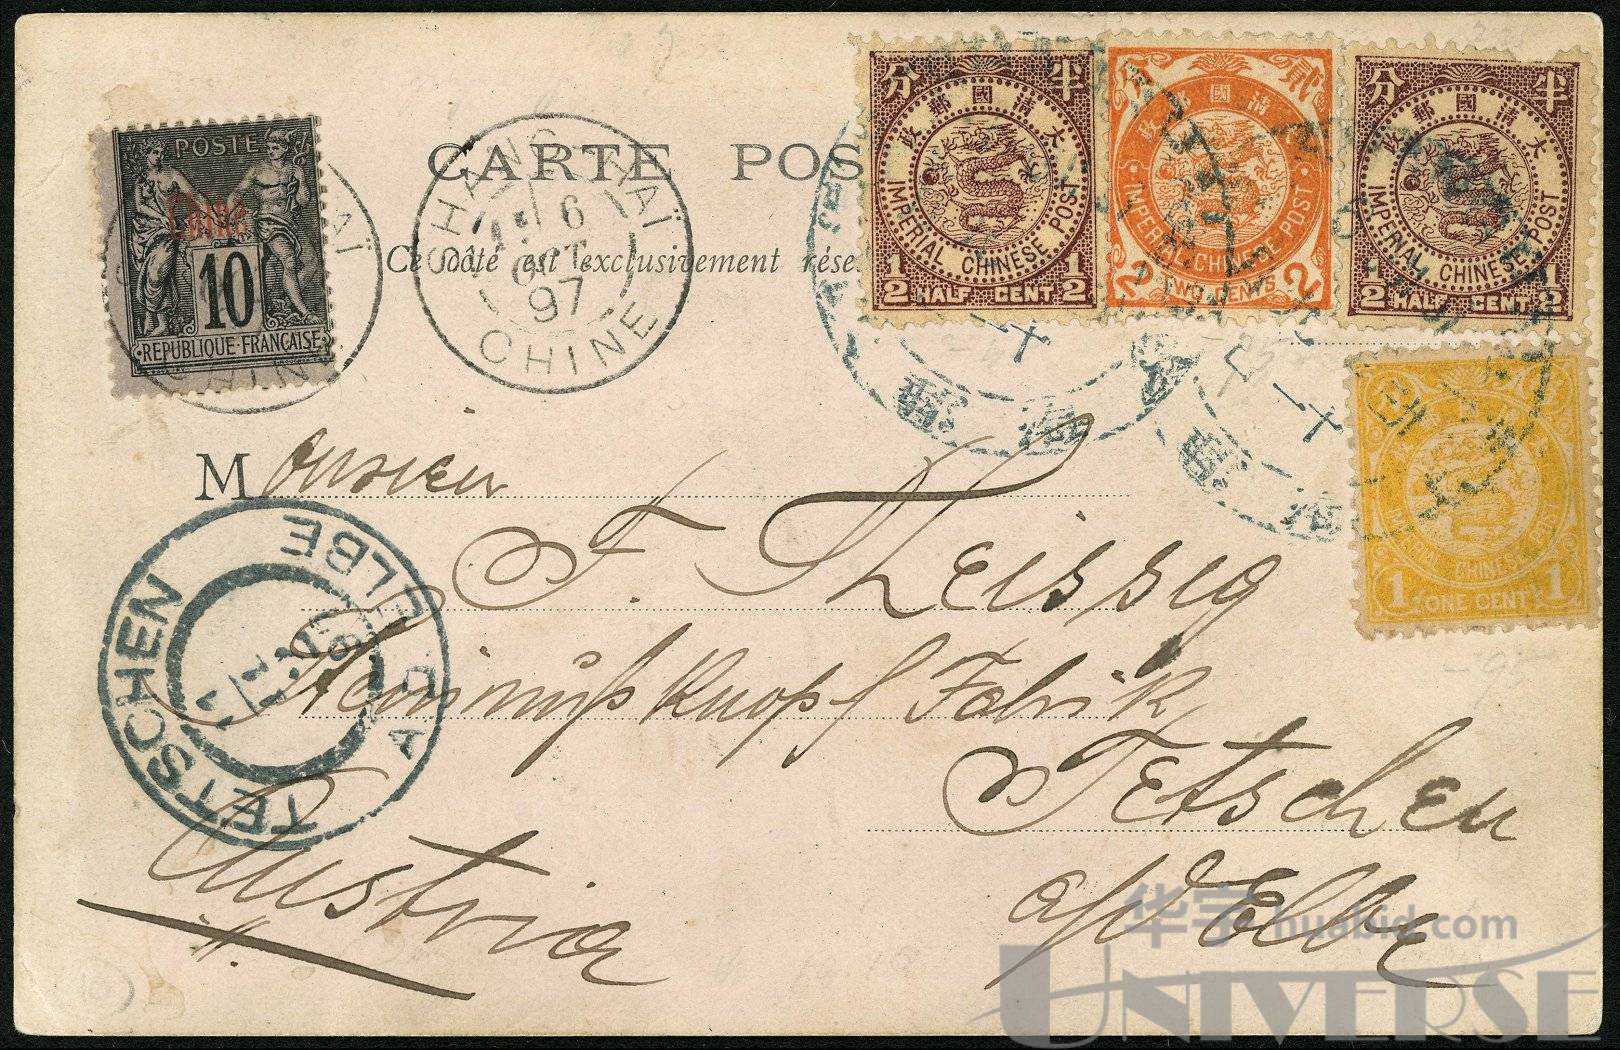 POSTE
Chine
10
REPUBLIQUE FRANÇAISE
CARTE POS
Ce côté est exclusivement rése
CHANG-HAÏ
6
OCT
97
CHINE
分 半
大清國郵政
IMPERIAL CHINESE POST
1/2 HALF CENT 1/2
貳
清國郵政
IMPERIAL CHINESE POST
2 TWO CENTS 2
分 半
大清國郵政
IMPERIAL CHINESE POST
1/2 HALF CENT 1/2
分
IMPERIAL CHINESE POST
1 ONE CENT 1
Monsieur
F. Theissig
Steinnußknopf Fabrik
Tetschen
a/d Elbe
Austria
TETSCHEN A.D. ELBE
华宇 huabid.com
UNIVERSE